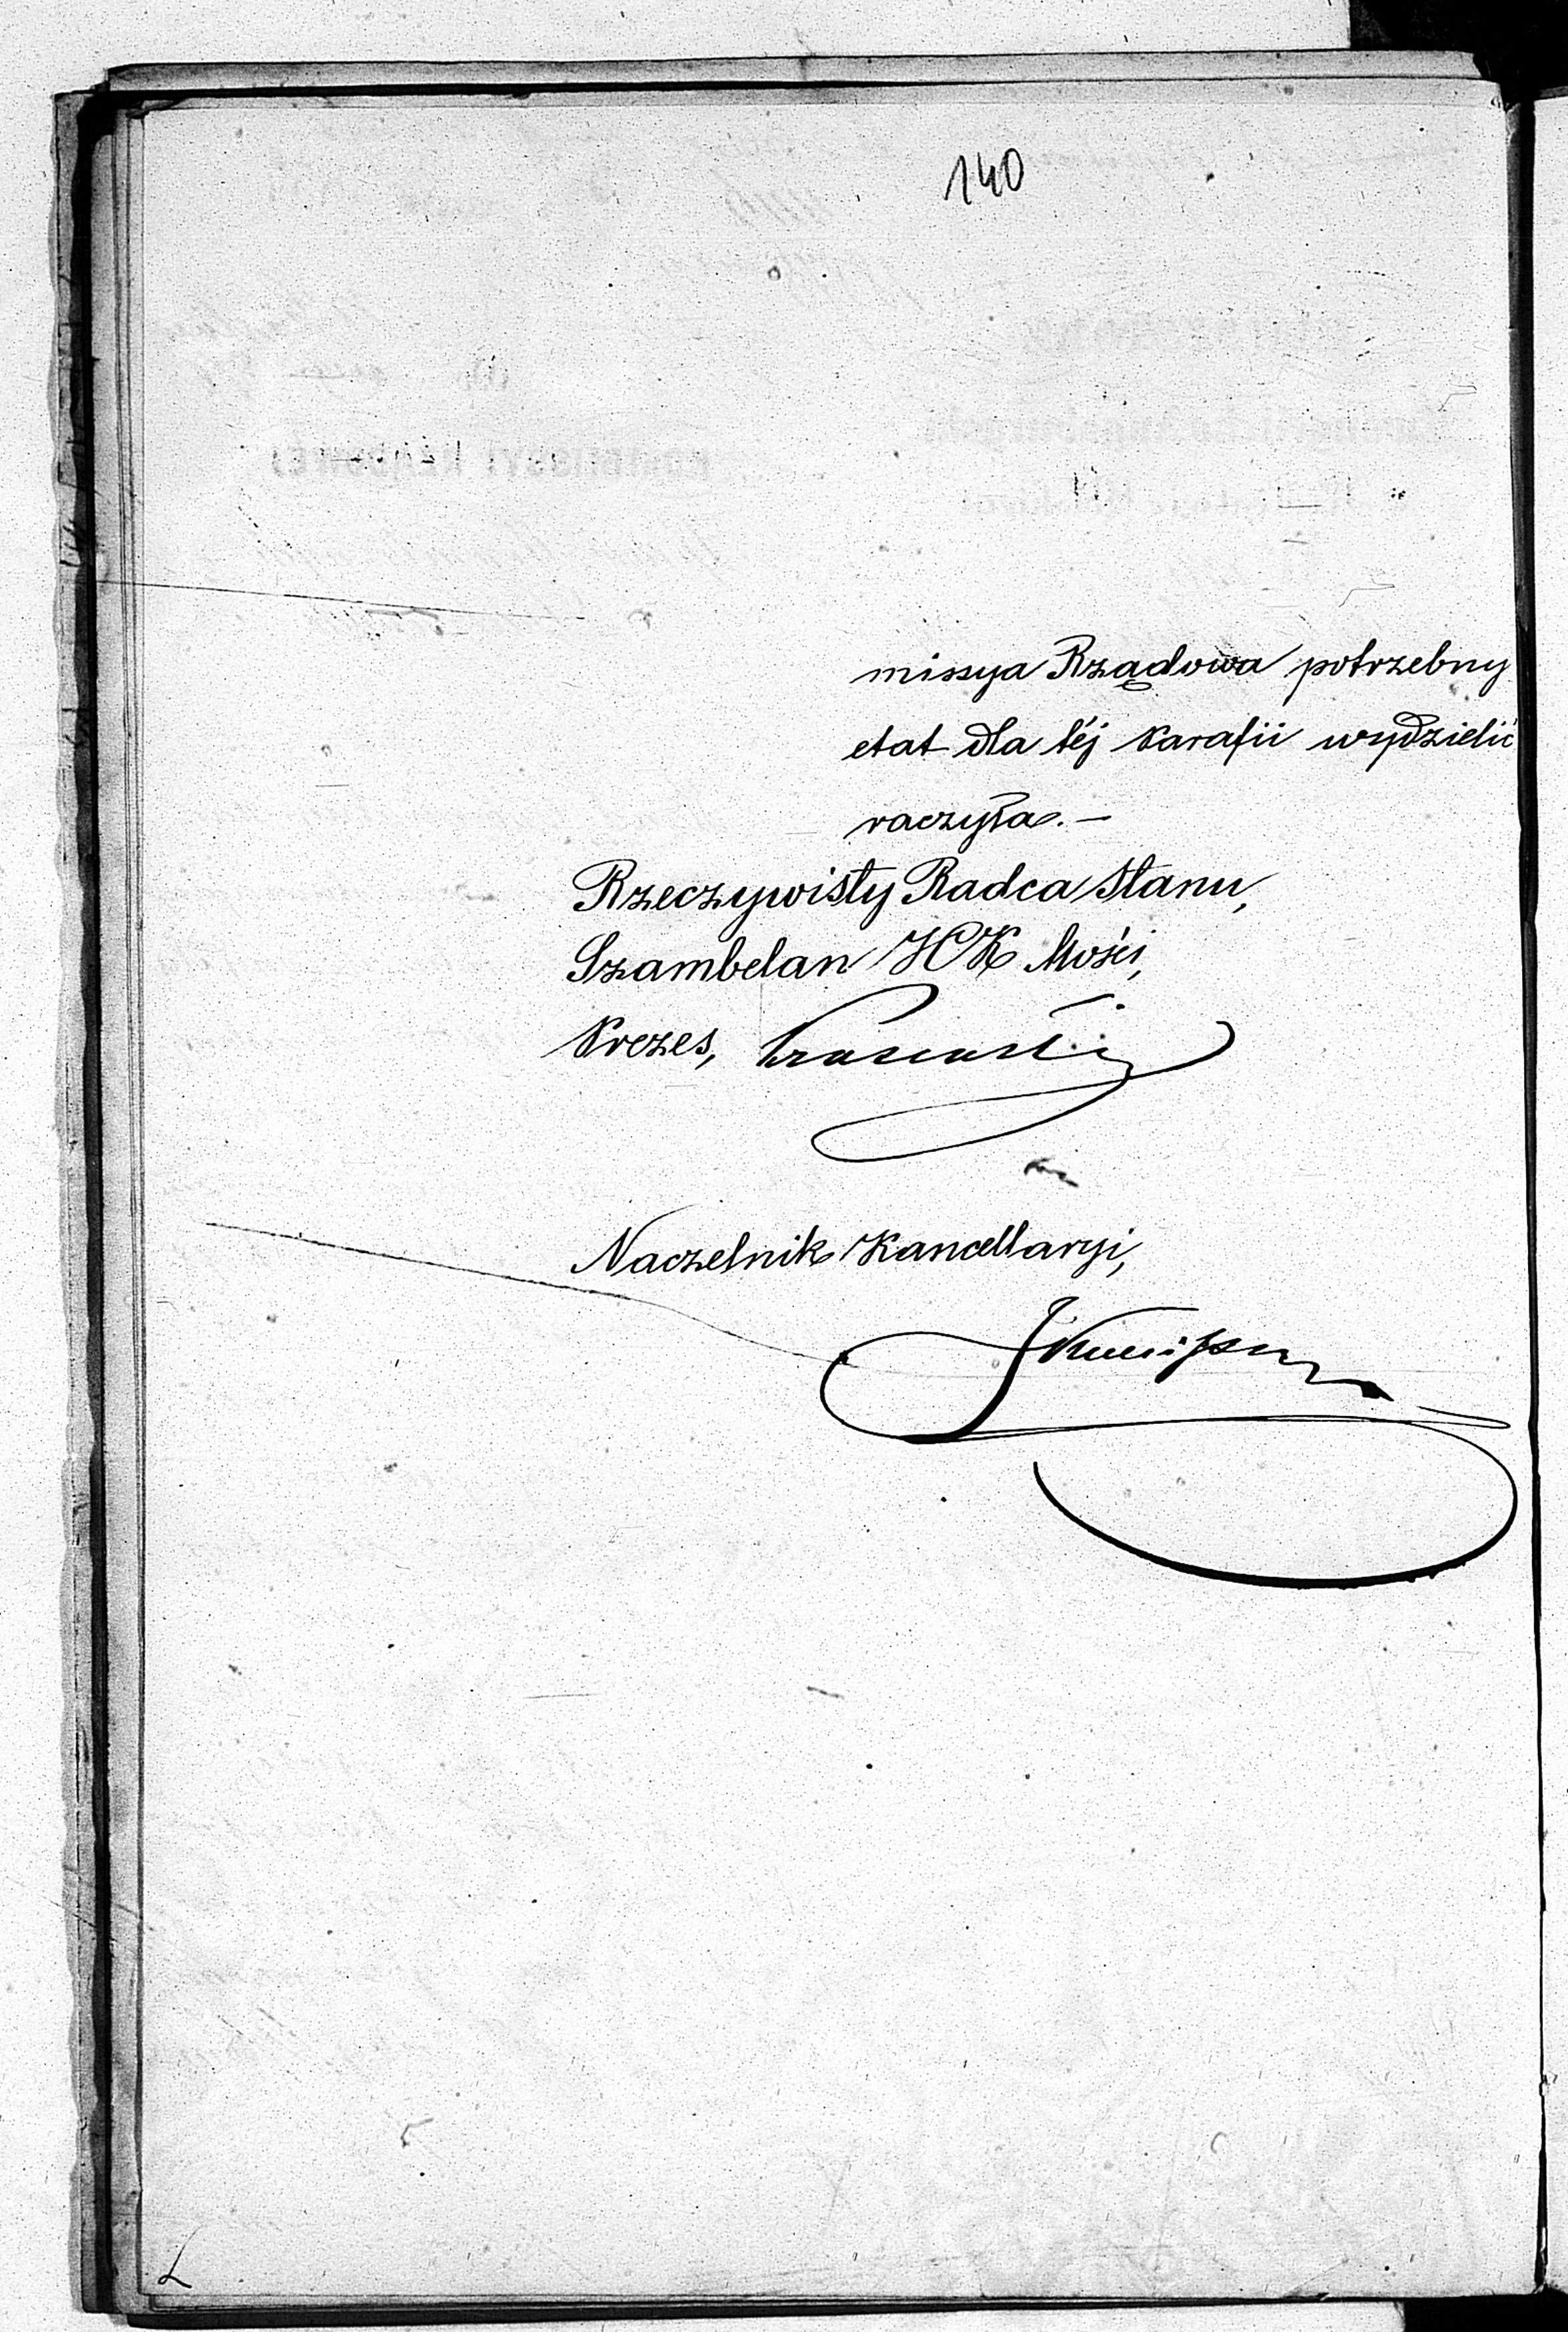 140
missya Rządowa potrzebny
etat dla téj parafii wydzielić
raczyła. –
Rzeczywisty Radca Stanu,
Szambelan JCK Mości,
Prezes,
Naczelnik Kancellaryi,